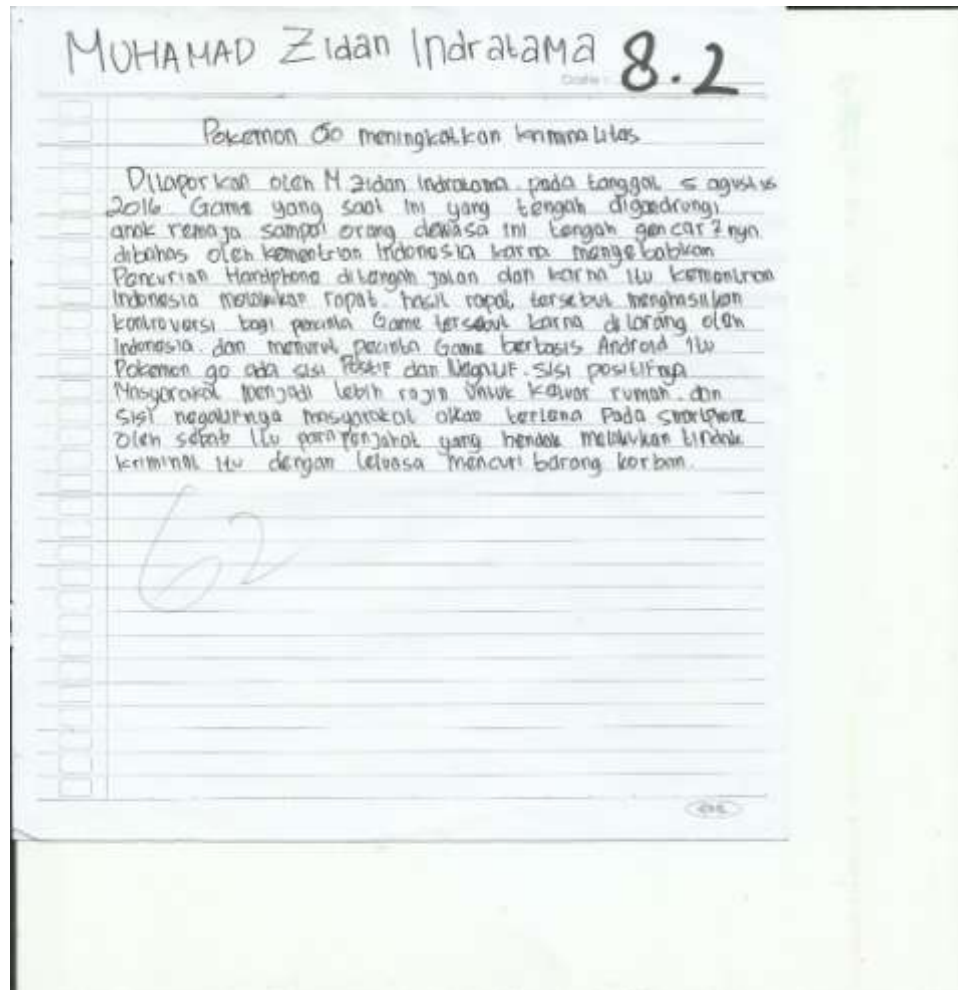 MUHAMAD Zidan Indratama 8.2
Date:
Pokemon Go meningkatkan kriminalitas
Dilaporkan oleh M zidan Indratama. pada tanggal 5 agustus
2016. Game yang saat ini yang tengah digandrungi
anak remaja sampai orang dewasa ini tengah gencar2nya
dibahas oleh kementrian Indonesia karna mengebabkan
Pencurian Handphone ditengah jalan dan karna itu kementrian
Indonesia melakukan rapat. hasil rapat tersebut menghasilkan
kontroversi bagi pecinta Game tersebut karna di larang oleh
Indonesia. dan menurut pecinta Game berbasis Android itu
Pokemon go ada sisi Positif dan Negatif. sisi positifnya
Masyarakat menjadi lebih rajin untuk keluar rumah. dan
sisi negatifnya masyarakat akan terlena Pada smartphone
oleh sebab itu para penjahat yang hendak melakukan tindak
kriminal itu dengan leluasa mencuri barang korban.
62